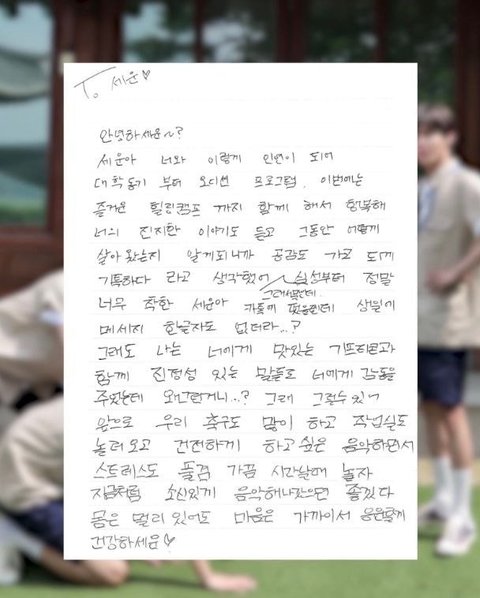 To 세운♡
안녕하세운~?
세운아 너와 이렇게 인연이 되어
대학동기 부터 오디션 프로그램, 이번에는
즐거운 힐링캠프 까지 함께 해서 행복해
너의 진지한 이야기도 듣고 그동안 어떻게
살아왔는지 알게되니까 공감도 가고 되게
기특하다 라고 생각했어 심성부터 정말
너무 착한 세운아 그래서말인데.. 카톡에 떴을런데 생일에
메세지 한글자도 없더라..?
그래도 나는 너에게 맛있는 기프티콘과
함께 진정성 있는 말들로 너에게 감동을
주었는데 왜그런거니..? 그래 그럴수있어
앞으로 우리 축구도 많이 하고 작업실도
놀러오고 건전하게 하고싶은 음악하면서
스트레스도 풀겸 가끔 시간날때 놀자
지금처럼 소신있게 음악해나갔으면 좋겠다
몸은 멀리있어도 마음은 가까이서 응원할게
건강하세운♡